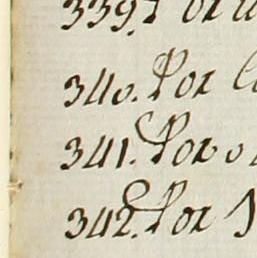 339. Por
340. Por
341. Por
342. Por